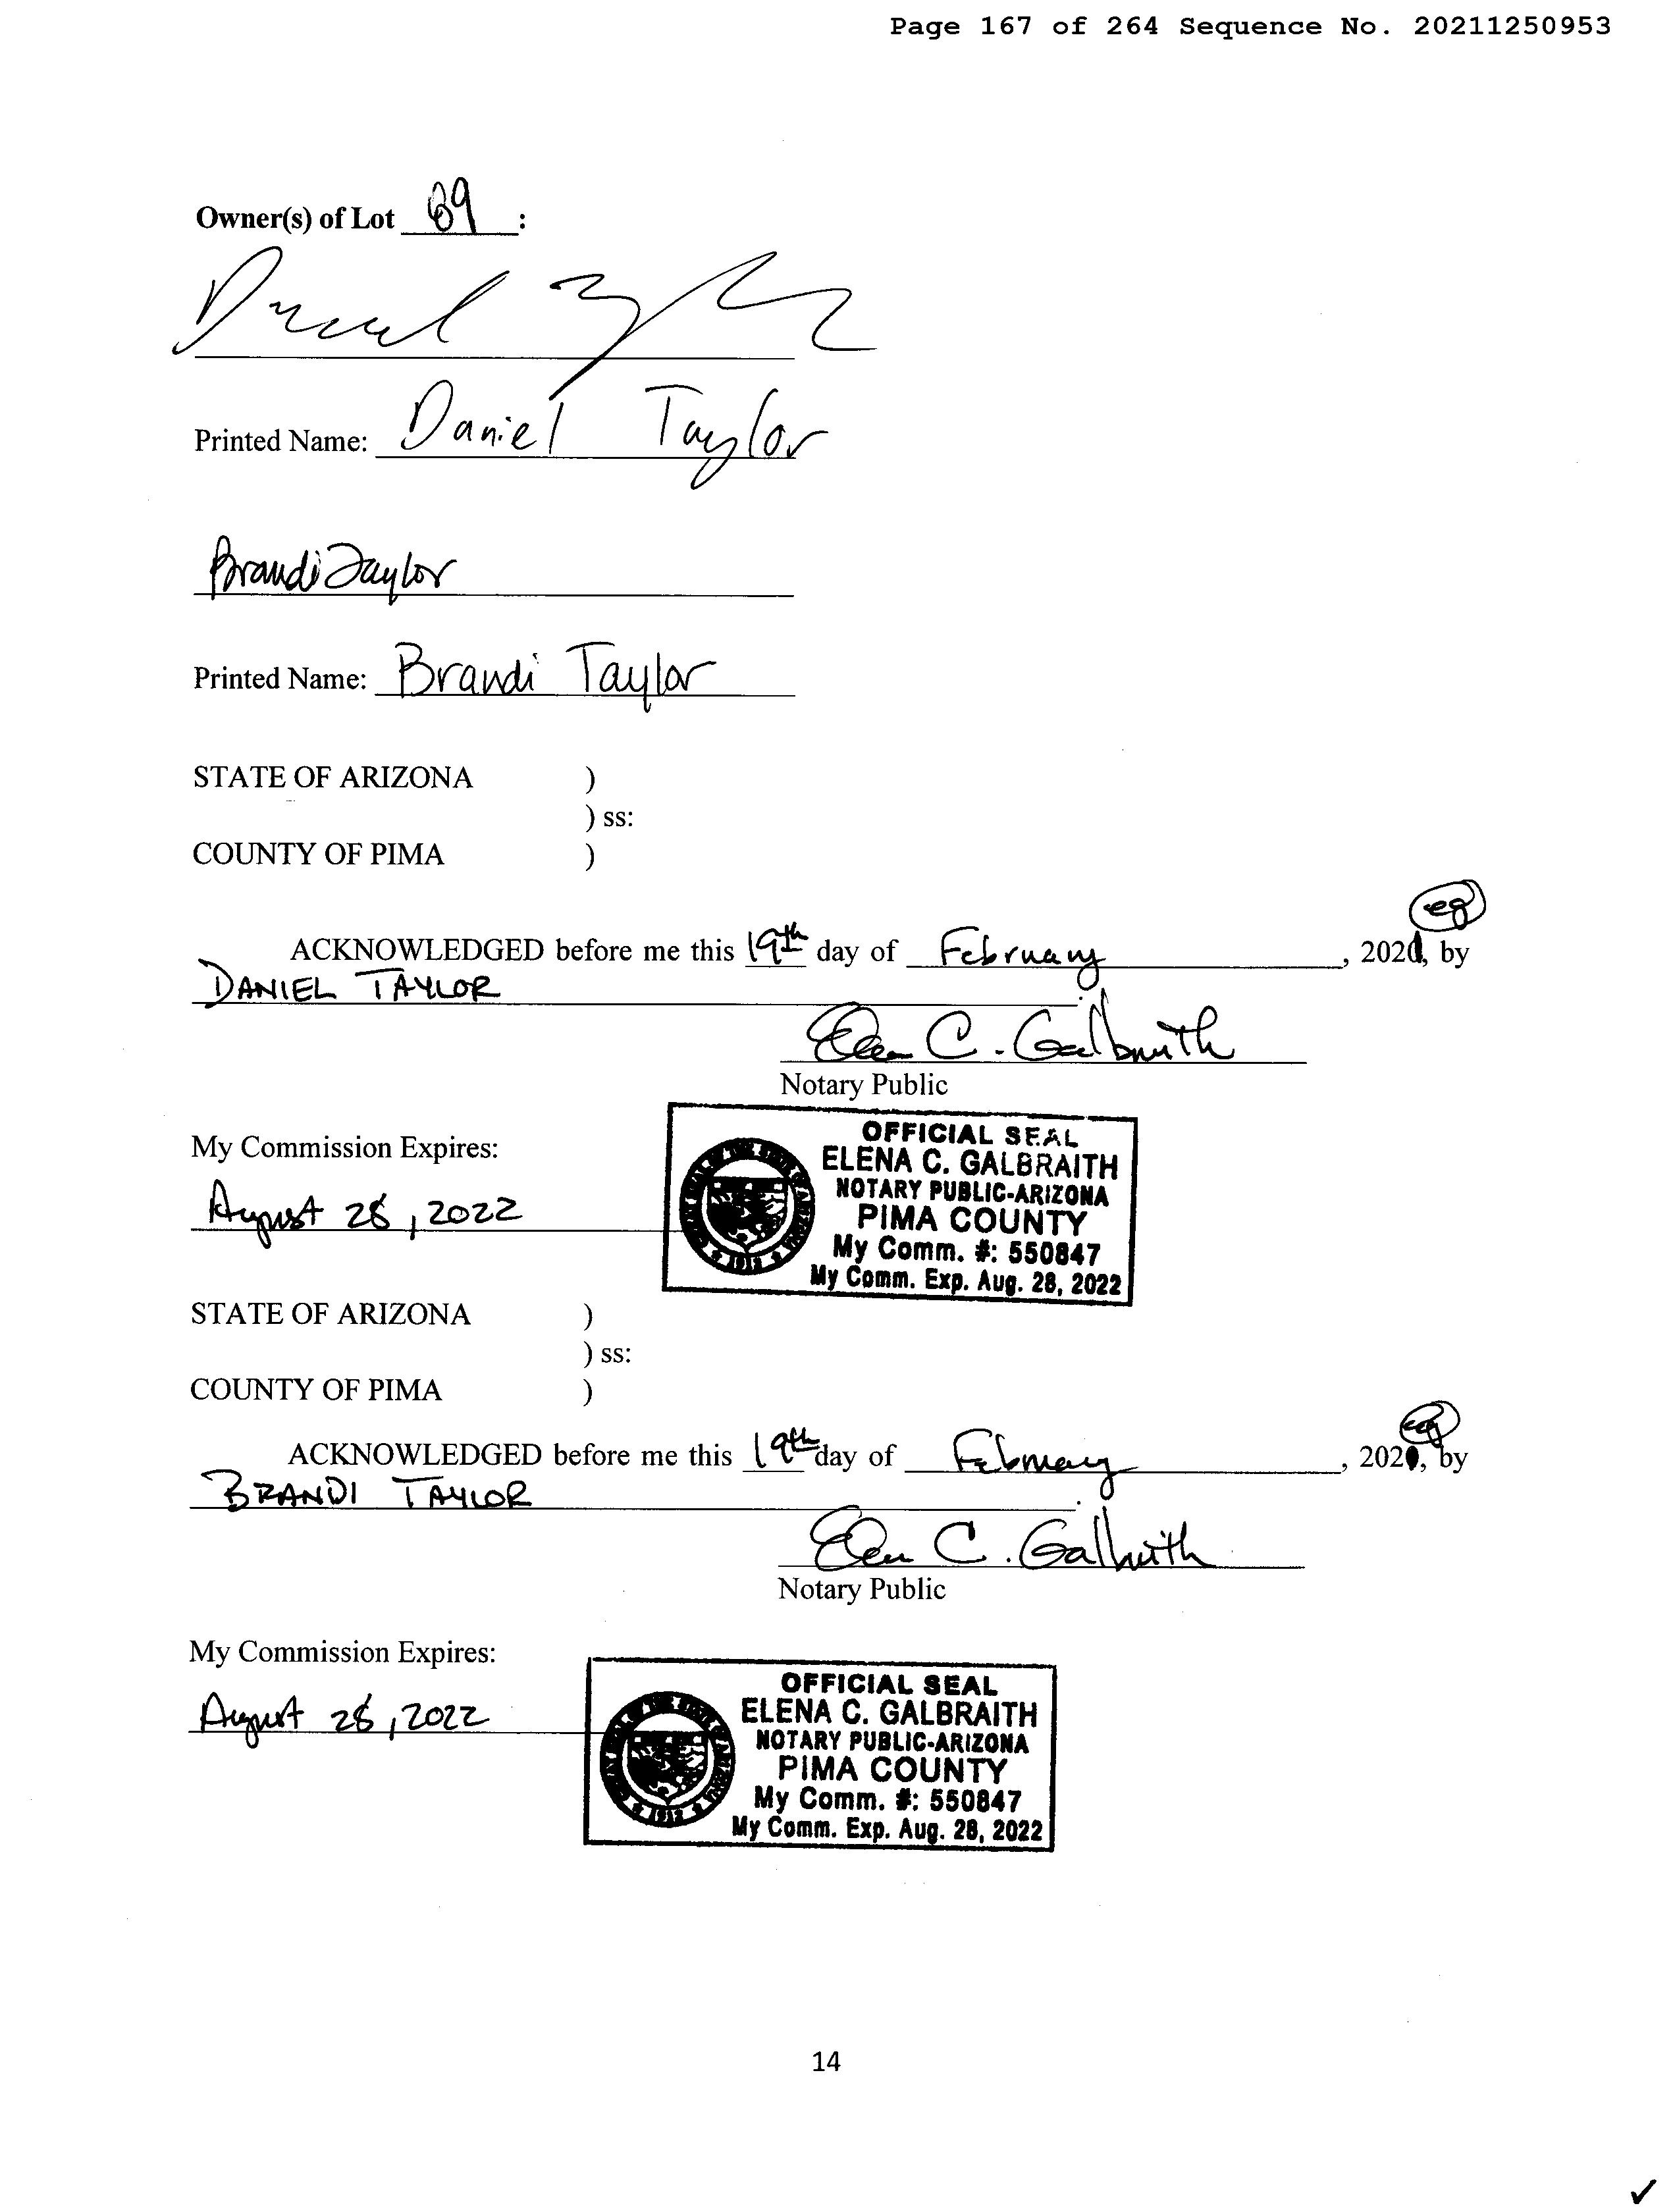 Page 167 of 264 Sequence No. 20211250953
Owner(s) of Lot 69 :
Printed Name: Daniel Taylor
Brandi Taylor
Printed Name: Brandi Taylor
STATE OF ARIZONA )
) ss:
COUNTY OF PIMA )
eg
ACKNOWLEDGED before me this 19th day of February, 2021, by
DANIEL TAYLOR
Elena C. Galbraith
Notary Public
My Commission Expires:
August 28, 2022
OFFICIAL SEAL
ELENA C. GALBRAITH
NOTARY PUBLIC-ARIZONA
PIMA COUNTY
My Comm. #: 550847
My Comm. Exp. Aug. 28, 2022
STATE OF ARIZONA )
) ss:
COUNTY OF PIMA )
eg
ACKNOWLEDGED before me this 19th day of February, 202, by
BRANDI TAYLOR
Elena C. Galbraith
Notary Public
My Commission Expires:
August 28, 2022
OFFICIAL SEAL
ELENA C. GALBRAITH
NOTARY PUBLIC-ARIZONA
PIMA COUNTY
My Comm. #: 550847
My Comm. Exp. Aug. 28, 2022
14